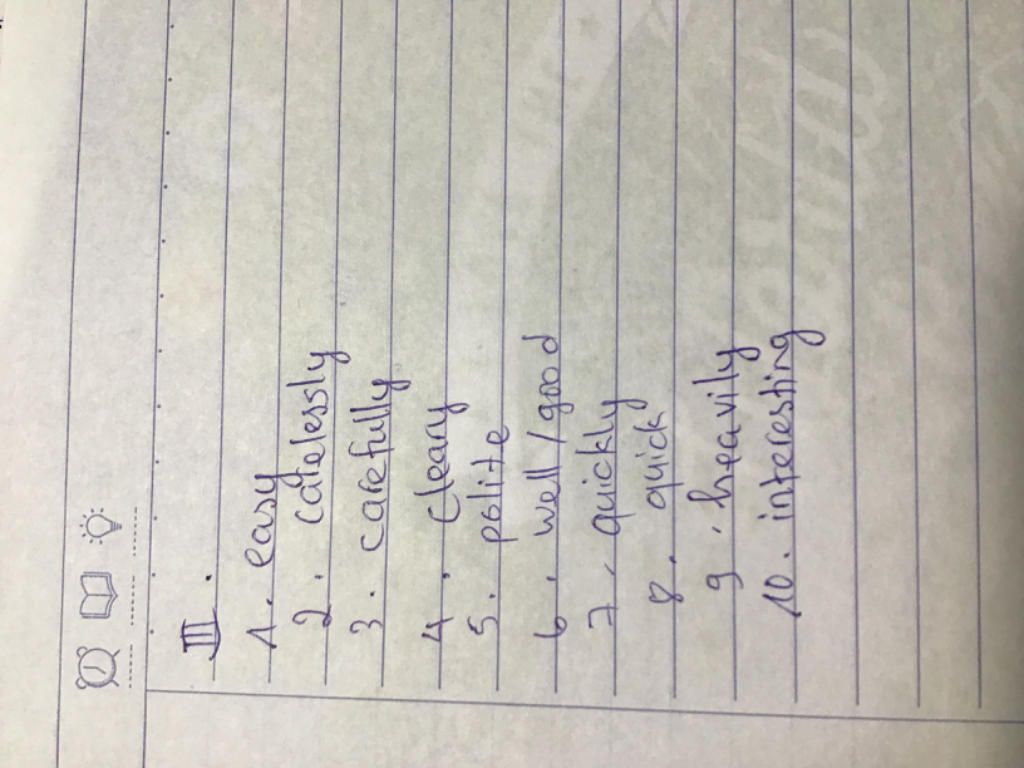 III.
1. easy
2. calelessly
3. carefully
4. Cleary
5. polite
6. well/good
7. quickly
8. quick
9. heavily
10. interesting